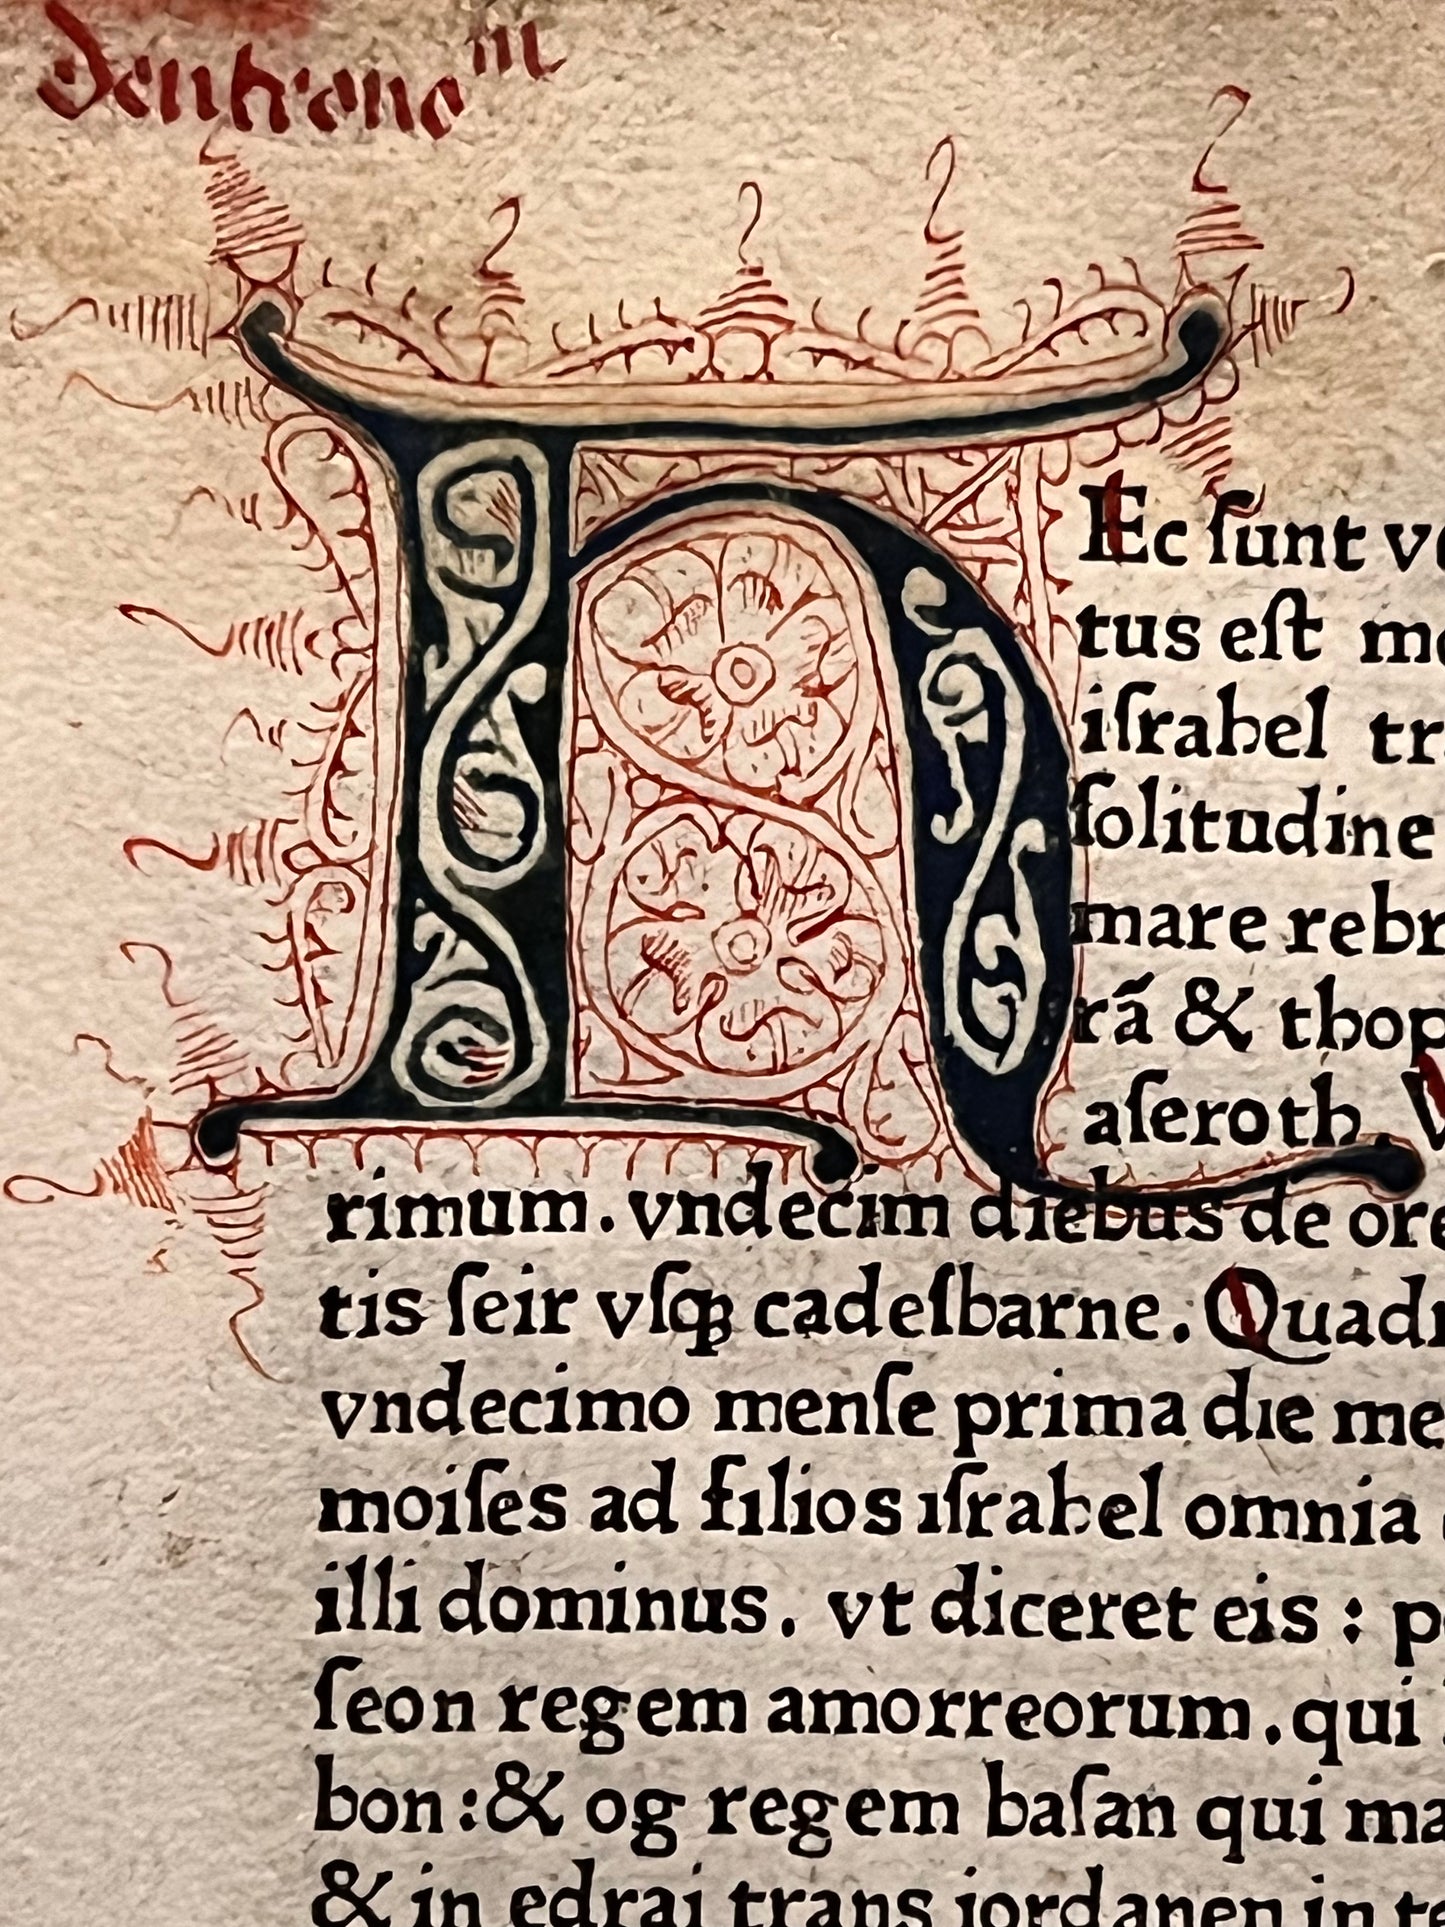 deutrono^m
H
Ec ſunt ve
tus eſt mo
iſrahel tr
ſolitudine
mare rebr
rã & thop
aſeroth. V
rimum. vndecim diebus de ore
tis ſeir vſqꝫ cadeſbarne. Quadr
vndecimo menſe prima die me
moiſes ad filios iſrahel omnia
illi dominus. vt diceret eis : po
ſeon regem amorreorum. qui
bon : & og regem baſan qui ma
& in edrai trans iordanen in te